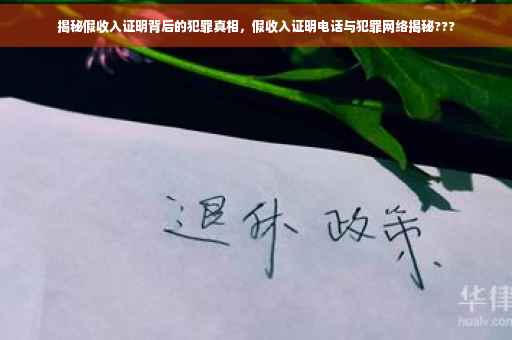 揭秘假收入证明背后的犯罪真相，假收入证明电话与犯罪网络揭秘???
退休 政策
华律
hualv.com